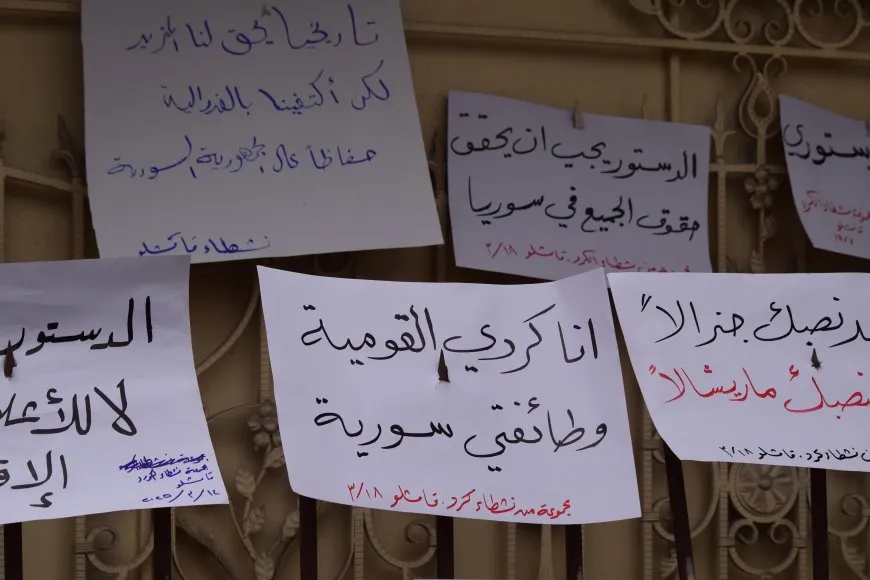 تاريخيا يحق لنا المزيد
لكن أكتفينا بالفدرالية
حفاظاً عال الجمهورية السورية
نشطاء قامشلو
الدستور يجب ان يحقق
حقوق الجميع في سوريا
مجموعة من نشطاء الكرد. قامشلو ٣/١٨
ستوري
نشطاء الكرد
الدستور
لا للأعلا
الإقـ
مجموعة نشطاء كورد
قامشلو
انا كردي القومية
وطائفتي سورية
مجموعة من نشطاء كرد. قامشلو ٣/١٨
نصبك جنرالاً
نصبك ماريشالاً
ن نشطاء كرد. قامشلو ٣/١٨